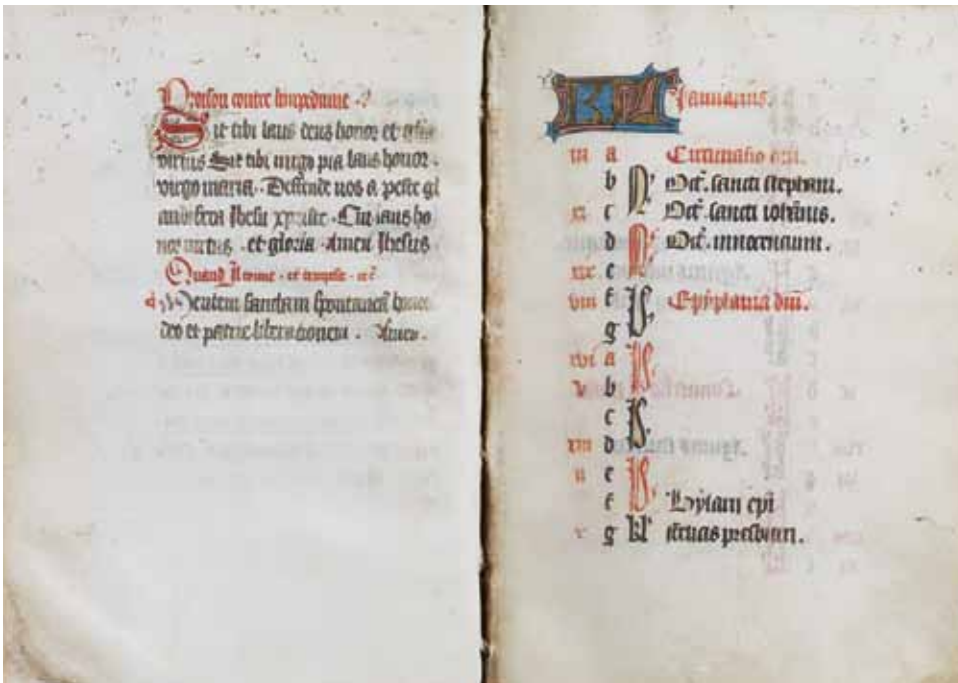 Oroison contre
Sit tibi laus deus honor et gl'ia
virtus Sit tibi virgo pia laus honor.
virgo maria. Deffende nos a peste gl
Ihesu xpriste. Cui laus ho
nor virtus. et gloria Amen Ihesus
Quand
Mentem sanctam spontaneam
deo et patrie liberationem. Amen.
KL Januarius.
iii a Circumcisio dni.
b N' Oct'. sancti stephani.
xi c Oct'. sancti iohannis.
d N' Oct'. innocentium.
xix e
viii f N' Epyphania dni.
g
xvi a N'
v b
c N'
xiii d
ii e N'
f Hylarii epi
x g felicis presbiteri.